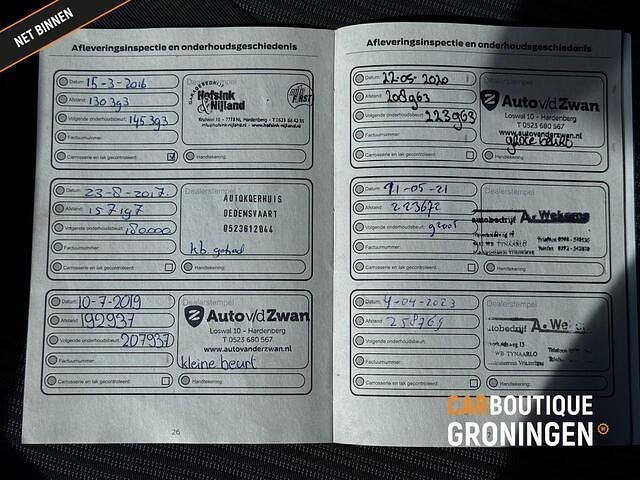 NET BINNEN
Afleveringsinspectie en onderhoudsgeschiedenis
Datum: 15-3-2016
Afstand: 130393
Volgende onderhoudsbeurt: 145393
Factuurnummer:
Carrosserie en lak gecontroleerd:
Dealerstempel
Hofsink
Nijland
Handtekening:
Datum: 23-8-2017
Afstand: 157197
Volgende onderhoudsbeurt: 180.000
Factuurnummer:
Carrosserie en lak gecontroleerd:
Dealerstempel
AUTOKOERHUIS
DEDEMSVAART
0523612044
k.b. gehad
Handtekening:
Datum: 10-7-2019
Afstand: 192937
Volgende onderhoudsbeurt: 207937
Factuurnummer:
Carrosserie en lak gecontroleerd:
Dealerstempel
Auto v/d Zwan
Loswal 10 - Hardenberg
T 0523 680 567
www.autovanderzwan.nl
kleine beurt
Handtekening:
26
Afleveringsinspectie en onderhoudsgeschiedenis
Datum: 22-05-2020
Afstand: 208963
Volgende onderhoudsbeurt: 223963
Factuurnummer:
Carrosserie en lak gecontroleerd:
Auto v/d Zwan
Loswal 10 - Hardenberg
T 0523 680 567
www.autovanderzwan.nl
grote beurt
Handtekening:
Datum: 11-05-21
Afstand: 223672
Volgende onderhoudsbeurt: groot
Factuurnummer:
Carrosserie en lak gecontroleerd:
Dealerstempel
Handtekening:
Datum: 4-04-2023
Afstand: 258769
Volgende onderhoudsbeurt:
Factuurnummer:
Carrosserie en lak gecontroleerd:
Dealerstempel
TYNAARLO
Handtekening:
CARBOUTIQUE
GRONINGEN